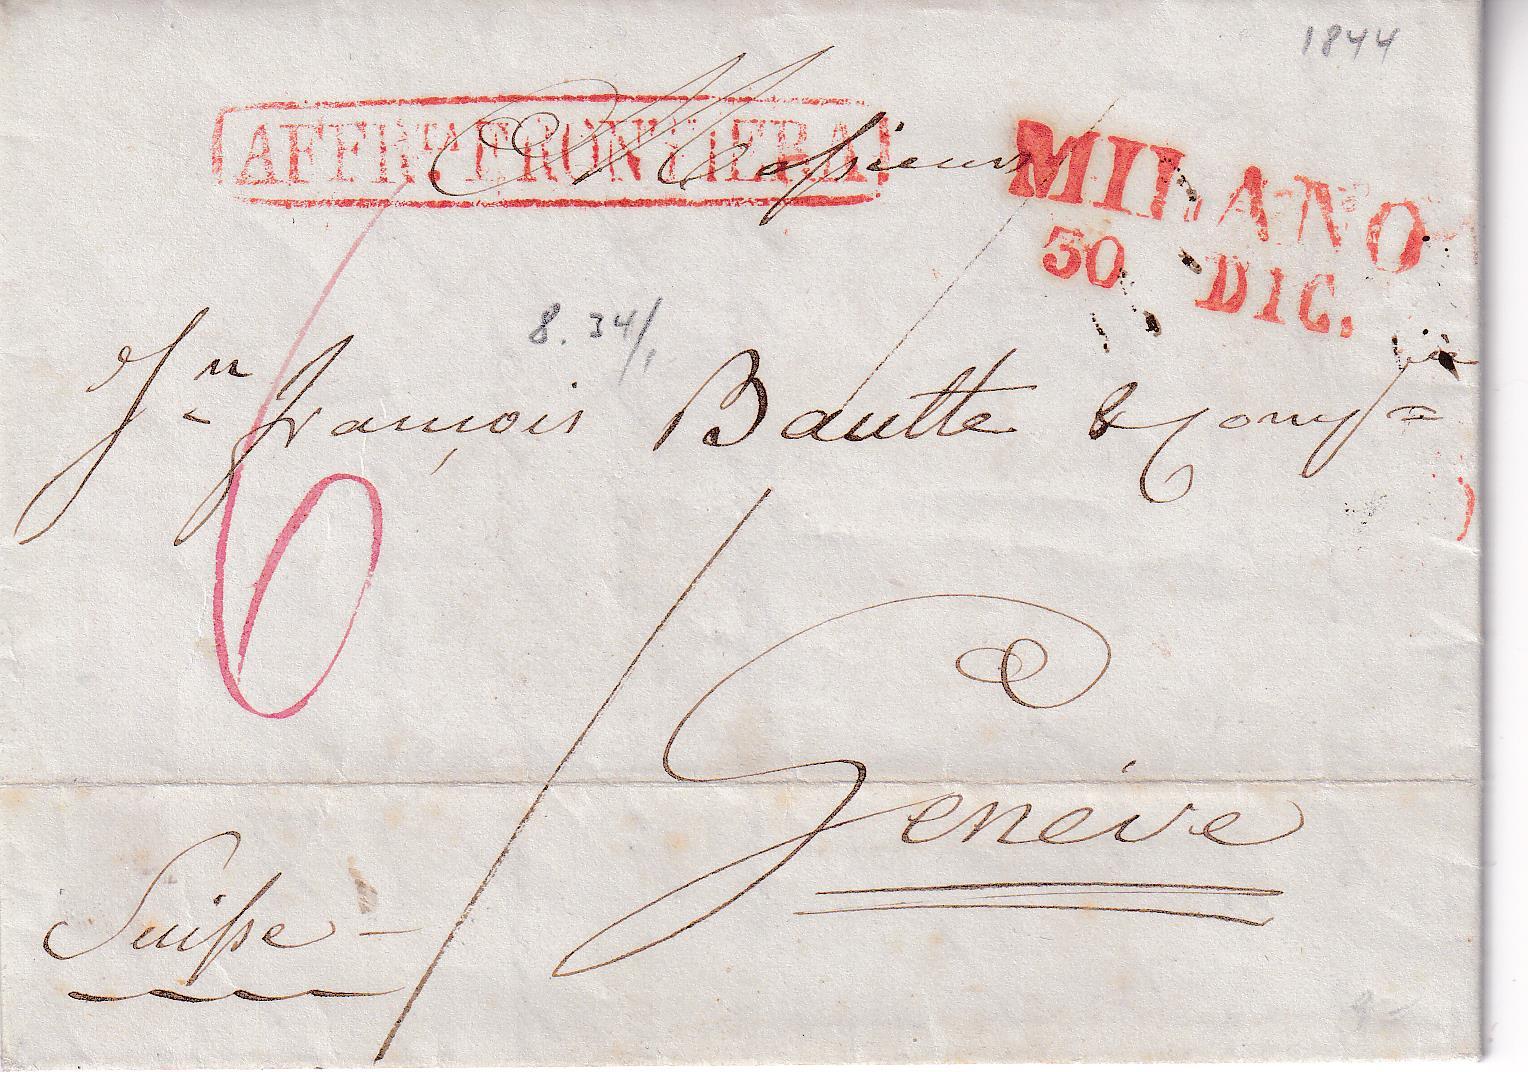 1844
AFFR.TA FRONTIERA
Messieurs
MILANO
30 DIC.
8. 34/1
Jn François Bautte & Comp
6
Genève
Suisse